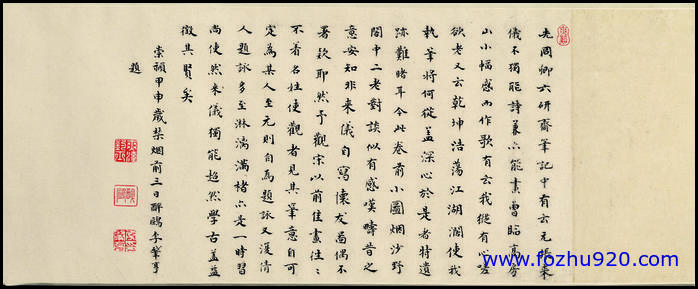 先冏卿六研齋筆記中有云元張來
儀不獨能詩兼亦能畫曾貽高房
山小幅感而作歌有云我縱有心差
欲老又云乾坤浩蕩江湖闊使我
執筆將何從蓋深心於是者特遺
跡難睹耳今此卷前小圖烟沙野
閣中二老對談似有感嘆疇昔之
意安知非來儀自寫懷友圖偶不
署欵耶然予觀宋以前佳畫往〻
不著名姓使觀者見其筆意自可
定為某人至元則自為題詠又漫倩
人題詠多至淋漓滿楮亦是一時習
尚使然來儀獨能超然學古益
徵其賢矣
崇禎甲申歲禁烟前三日醉鷗李肇亨
題
www.fozhu920.com